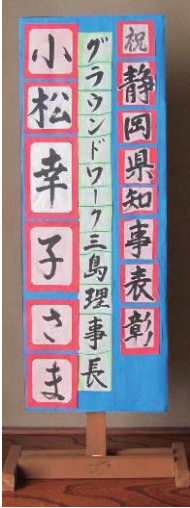 祝静岡県知事表彰
グラウンドワーク三島理事長
小松幸子さま